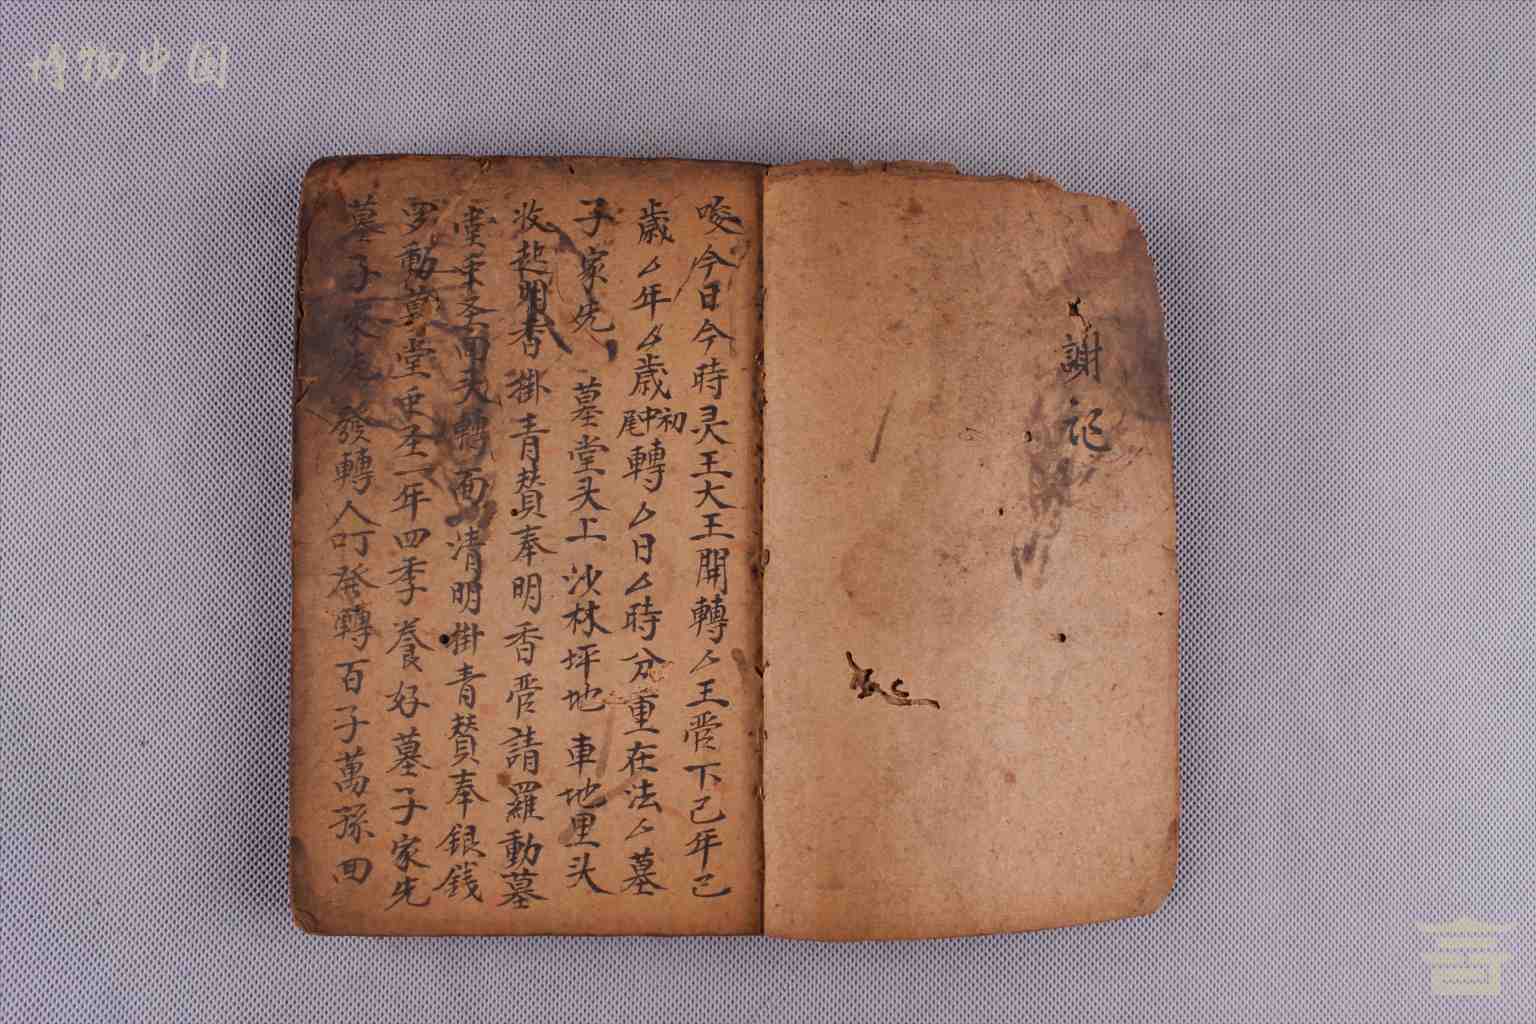 博物中国
謝記
唆今日今時灵王大王開轉厶王管下己年己
歲厶年厶歲初中尾轉厶日厶時分重在法厶墓
子家先墓堂头上沙林坪地車地里头
收起明香掛青賛奉明香管請羅動墓
堂禾冬回头轉面清明掛青賛奉银钱
罗動墓堂更圣一年四季養好墓子家先
墓子家先發轉人叮發轉百子萬孫回